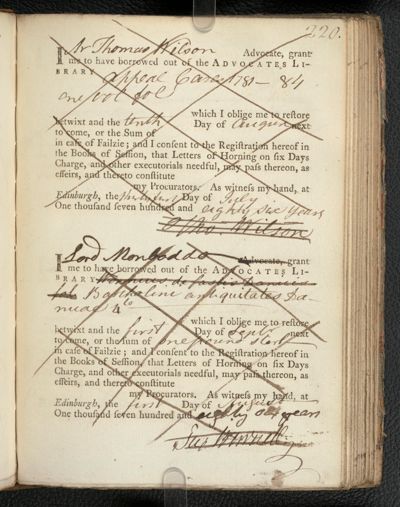 220.
I Mr Thomas Wilson Advocate, grant
me to have borrowed out of the ADVOCATES LI-
BRARY Appeal Cases 1781 – 84
one vol fol
which I oblige me to restore
betwixt and the tenth Day of August next
to come, or the Sum of
in case of Failzie; and I consent to the Registration hereof in
the Books of Session, that Letters of Horning on six Days
Charge, and other executorials needful, may pass thereon, as
effeirs, and thereto constitute
my Procurators. As witness my hand, at
Edinburgh, the Day of July
One thousand seven hundred and eighty six years
Tho. Wilson
I Lord Monboddo Advocate, grant
me to have borrowed out of the ADVOCATES LI-
BRARY Wormius de fastis Danicis
fol Bartholini antiquitates Da-
nicae 4to
which I oblige me to restore
betwixt and the first Day of Septr next
to come, or the sum of one pound Sterl
in case of Failzie; and I consent to the Registration hereof in
the Books of Session, that Letters of Horning on six Days
Charge, and other executorials needful, may pass thereon, as
effeirs, and thereto constitute
my Procurators. As witness my hand, at
Edinburgh, the first Day of August
One thousand seven hundred and eighty six years
Jas Burnett